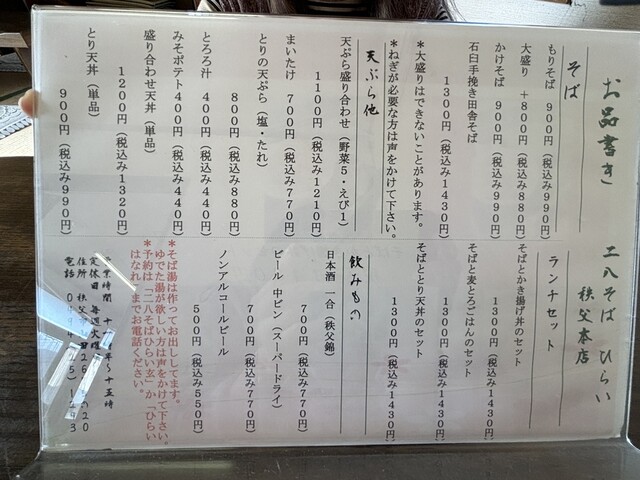 お品書き
二八そば ひらい
秩父本店
そば
もりそば 900円(税込み990円)
大盛り +800円(税込み880円)
かけそば 900円(税込み990円)
石臼手挽き田舎そば
1300円(税込み1430円)
*大盛りはできないことがあります。
*ねぎが必要な方は声をかけて下さい。
天ぷら他
天ぷら盛り合わせ(野菜5・えび1)
1100円(税込み1210円)
まいたけ 700円(税込み770円)
とりの天ぷら(塩・たれ)
800円(税込み880円)
とろろ汁 400円(税込み440円)
みそポテト400円(税込み440円)
盛り合わせ天丼(単品)
1200円(税込み1320円)
とり天丼(単品)
900円(税込み990円)
ランチセット
そばとかき揚げ丼のセット
1300円(税込み1430円)
そばと麦とろごはんのセット
1300円(税込み1430円)
そばととり天丼のセット
1300円(税込み1430円)
飲みもの
日本酒 一合(秩父錦)
700円(税込み770円)
ビール 中ビン(スーパードライ)
700円(税込み770円)
ノンアルコールビール
500円(税込み550円)
*そば湯は作ってお出ししてます。
ゆでた湯が欲しい方は声をかけて下さい。
*予約は「二八そばひらい玄」か「ひらい
はなれ」までお電話ください。
業時間 十
時~十五時
定休日 毎週火曜
住所 秩父
電話